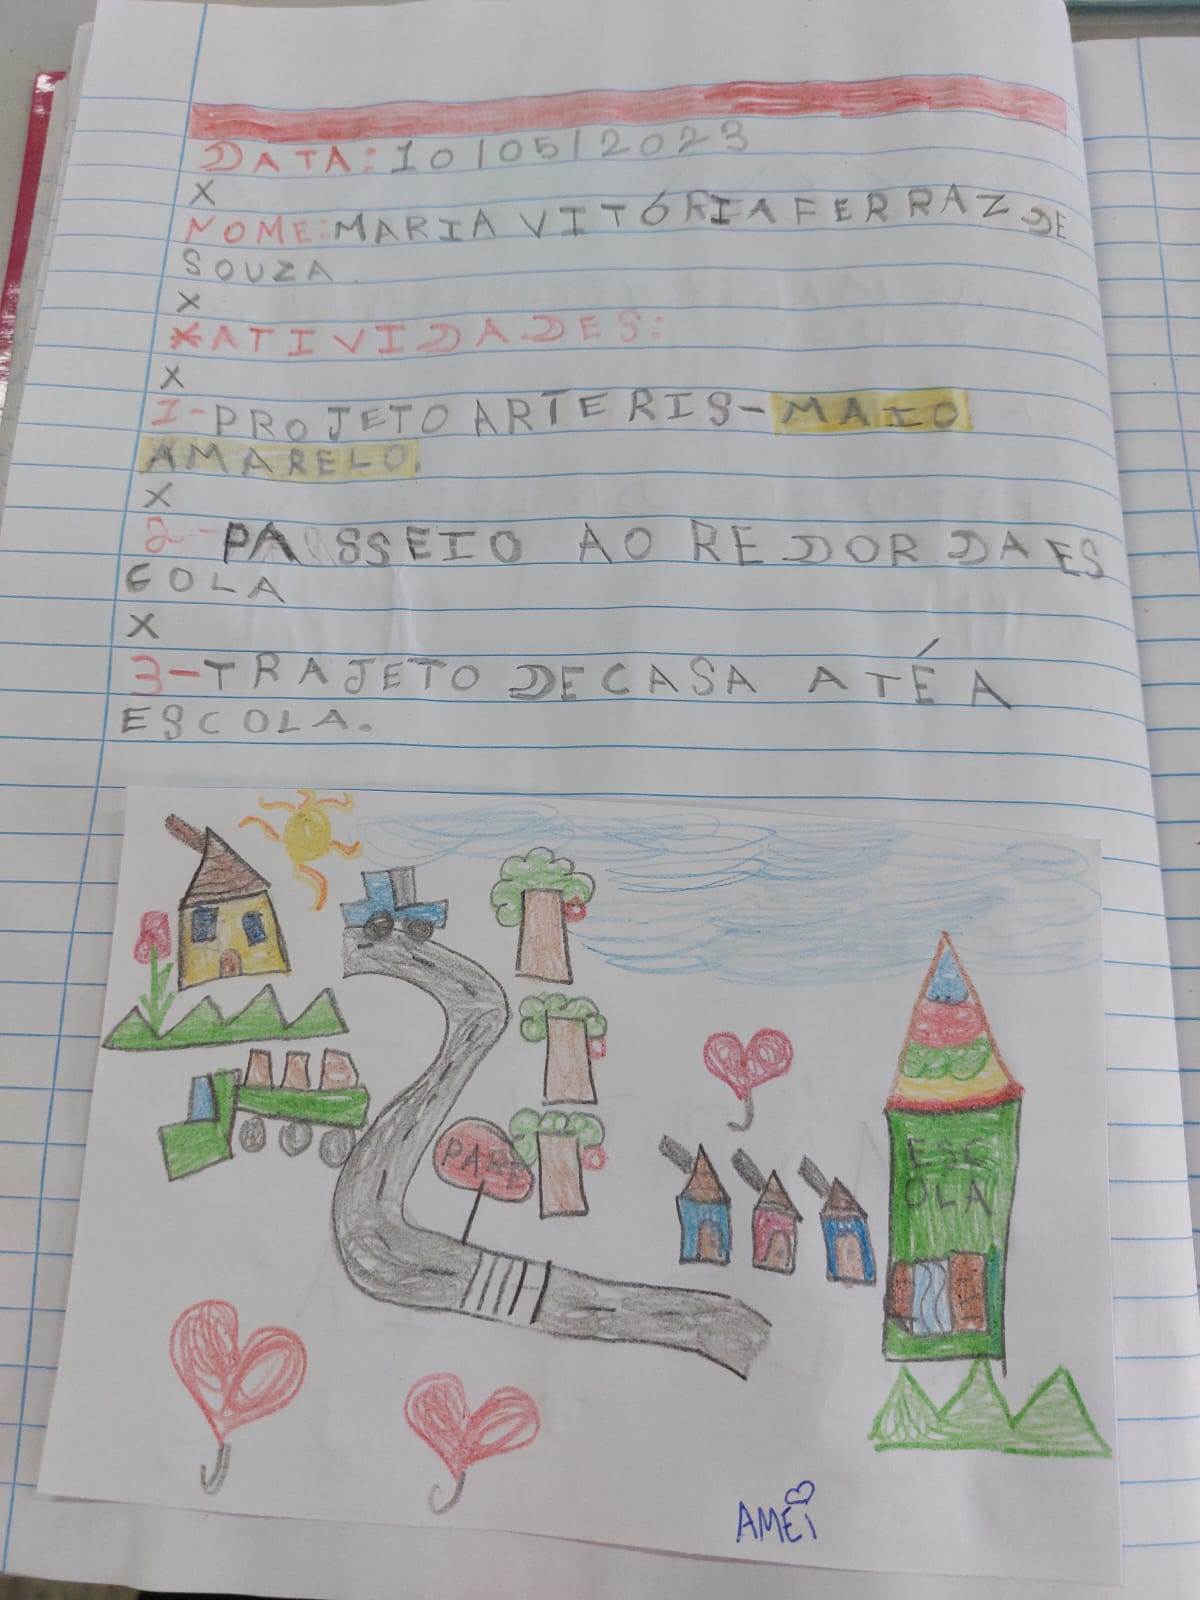 DATA: 10/05/2023
X
NOME: MARIA VITÓRIA FERRAZ DE
SOUZA
X
*ATIVIDADES:
X
1-PROJETO ARTERIS-MAIO
AMARELO.
X
2-PASSEIO AO REDOR DA ES
COLA
X
3-TRAJETO DE CASA ATÉ A
ESCOLA.
PARE
ESC
OLA
AMEi